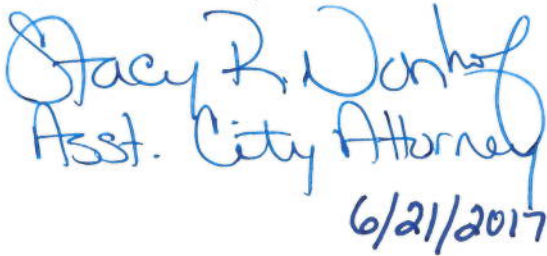 Stacy R. Donhof
Asst. City Attorney
6/21/2017